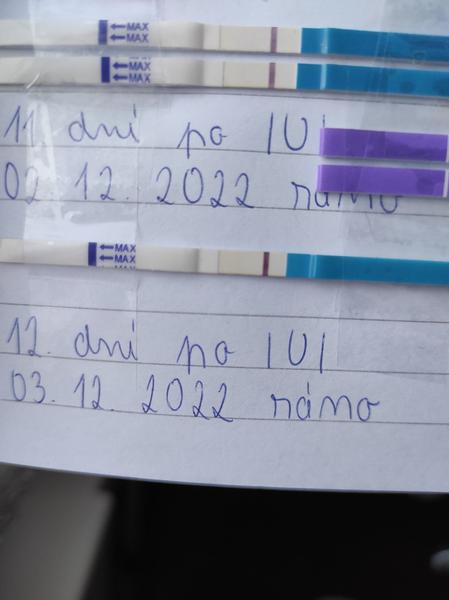 ←MAX
←MAX
←MAX
←MAX
11 dní po IUI
02.12.2022 ráno
←MAX
←MAX
12. dní po IUI
03.12.2022 ráno